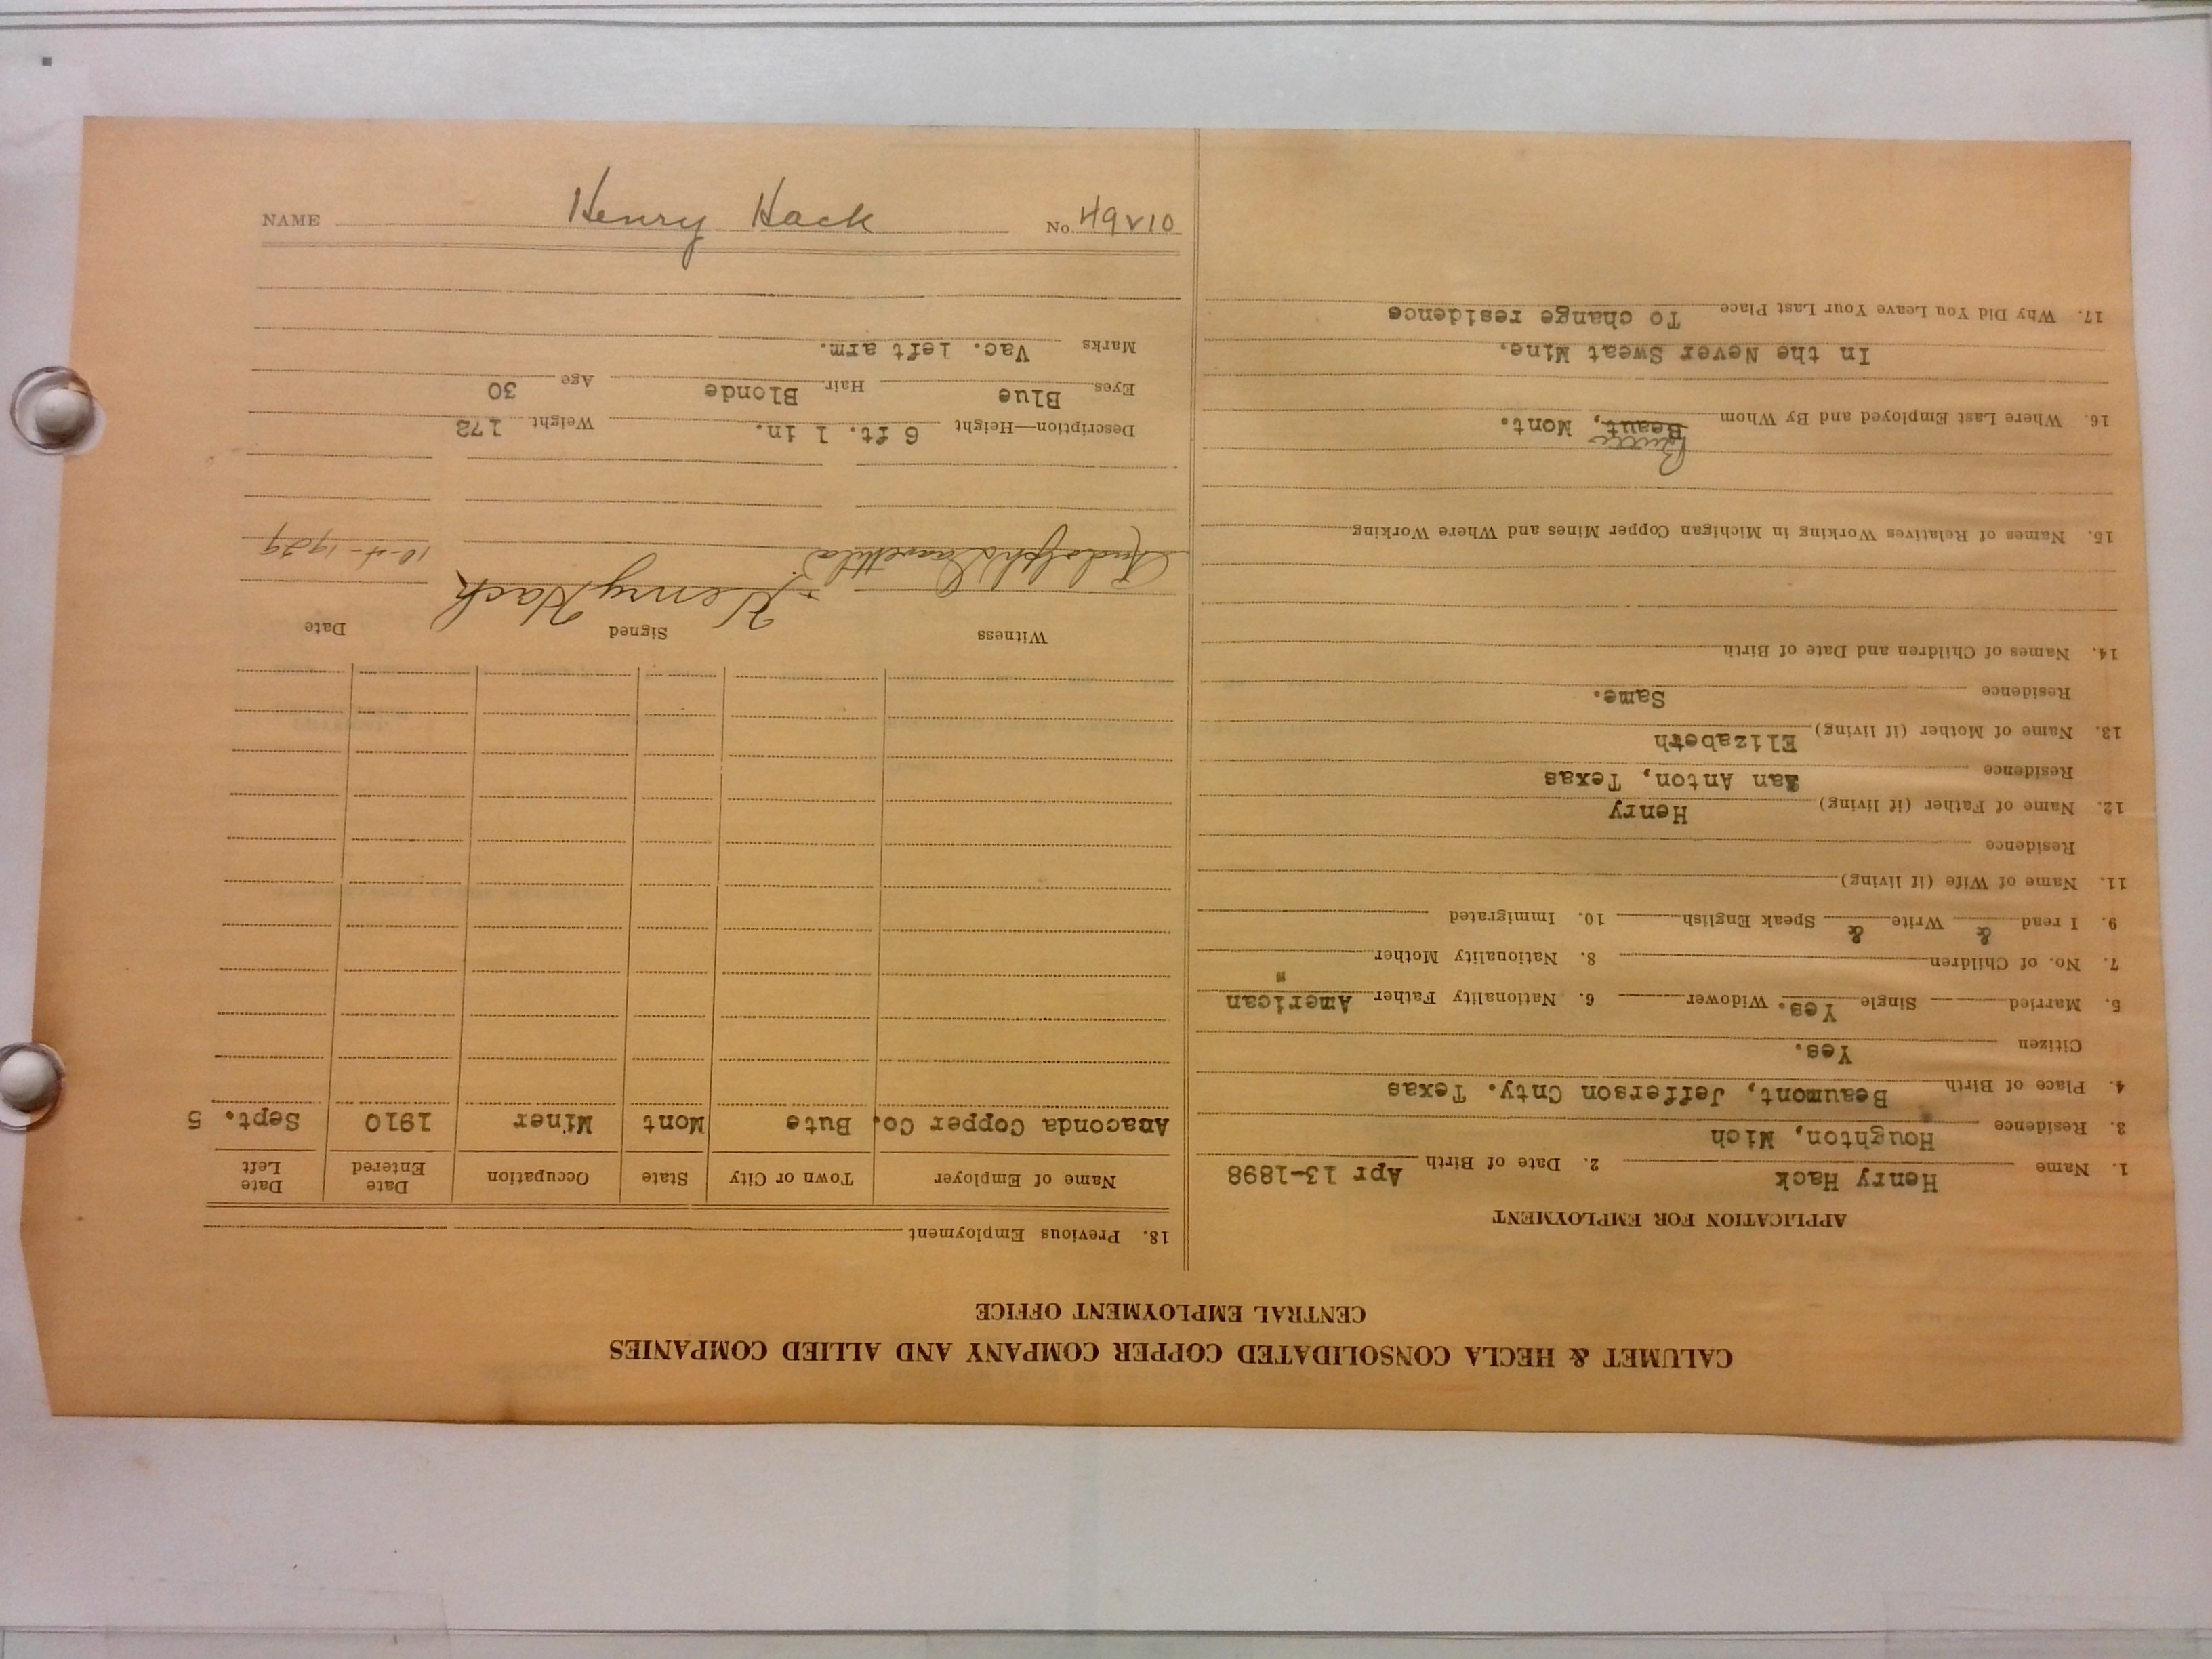 CALUMET & HECLA CONSOLIDATED COPPER COMPANY AND ALLIED COMPANIES
CENTRAL EMPLOYMENT OFFICE
APPLICATION FOR EMPLOYMENT
1. Name Henry Hack 2. Date of Birth Apr 13-1898
3. Residence Houghton, Mich
4. Place of Birth Beaumont, Jefferson Cnty. Texas
Citizen Yes.
5. Married Single Yes. Widower 6. Nationality Father American
7. No. of Children 8. Nationality Mother "
9. I read & Write & Speak English 10. Immigrated
11. Name of Wife (if living)
Residence
12. Name of Father (if living) Henry
Residence San Anton, Texas
13. Name of Mother (if living) Elizabeth
Residence Same.
14. Names of Children and Date of Birth
15. Names of Relatives Working in Michigan Copper Mines and Where Working
Butte
16. Where Last Employed and By Whom Beaut, Mont.
In the Never Sweat Mine.
17. Why Did You Leave Your Last Place To change residence
18. Previous Employment
Name of Employer Town or City State Occupation Date Entered Date Left
Anaconda Copper Co. Bute Mont Miner 1910 Sept. 5
Witness Signed Date
Henry Hack 10-4-1929
Description—Height 6 ft. 1 in. Weight 172
Eyes Blue Hair Blonde Age 30
Marks Vac. left arm.
NAME Henry Hack No. 49V10